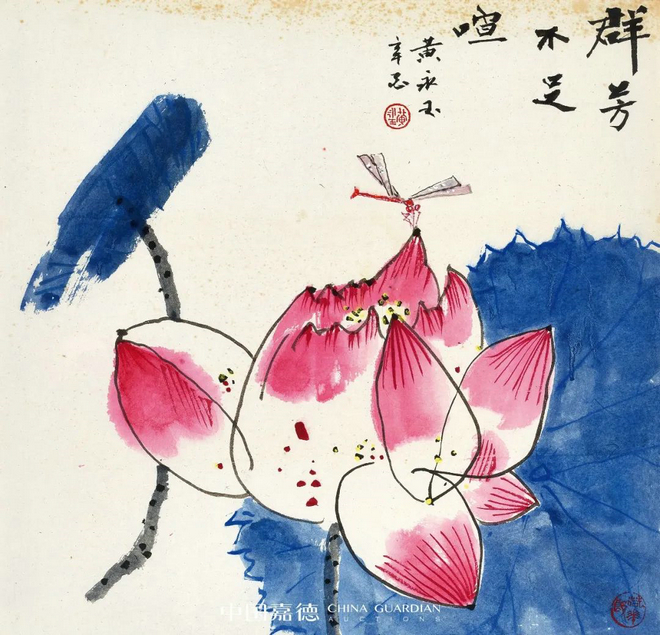 群芳
不足
喧
黄永玉
辛
中国嘉德 CHINA GUARDIAN
AUCTIONS